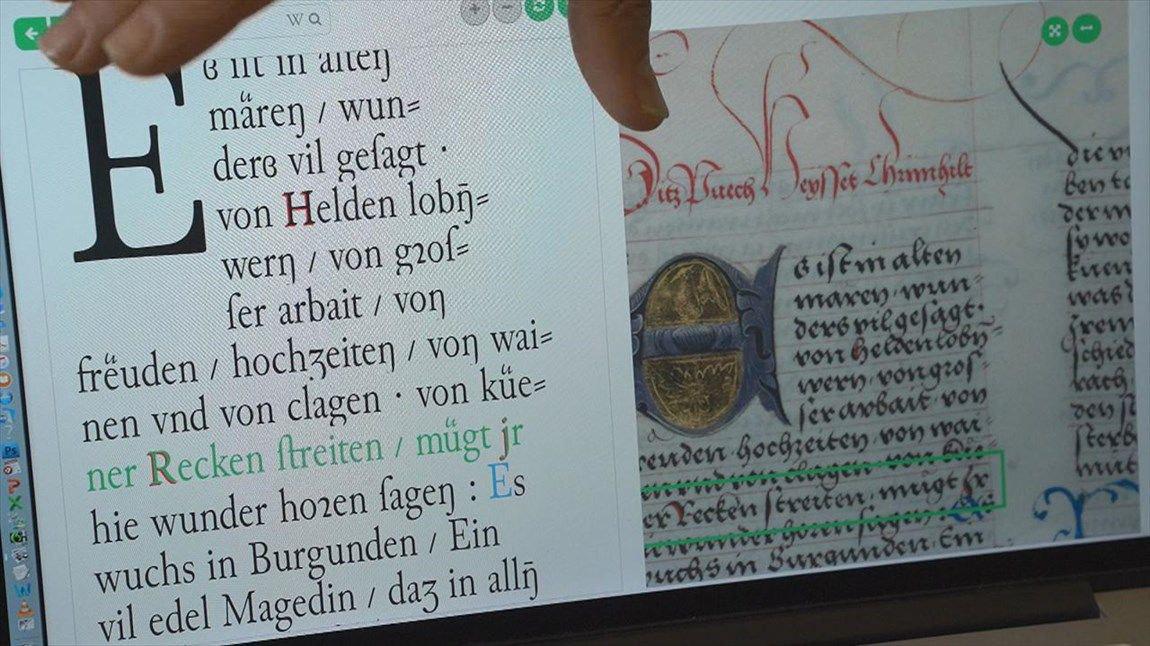 W
Eß iſt in alteŋ
märeŋ / wun=
derß vil geſagt ·
von Helden lobn̄=
werŋ / von gꝛoſ=
ſer arbait / voŋ
freüden / hochʒeiteŋ / voŋ wai=
nen vnd von clagen · von küe=
ner Recken ſtreiten / mügt jr
hie wunder hoꝛen ſageŋ : Es
wuchs in Burgunden / Ein
vil edel Magedin / daʒ in alln̄
Ditz Puech Heyſſet Chrimhilt
Es iſt in alten
maren wun=
ders vil geſagt:
von Helden lobn̄=
wern von groſ=
ſer arbait von
reuden hochzeiten von wai=
von clagen von
er Recken ſtreiten mügt Jr
wunder horen ſagen Es
wuchs in Burgunden Ein